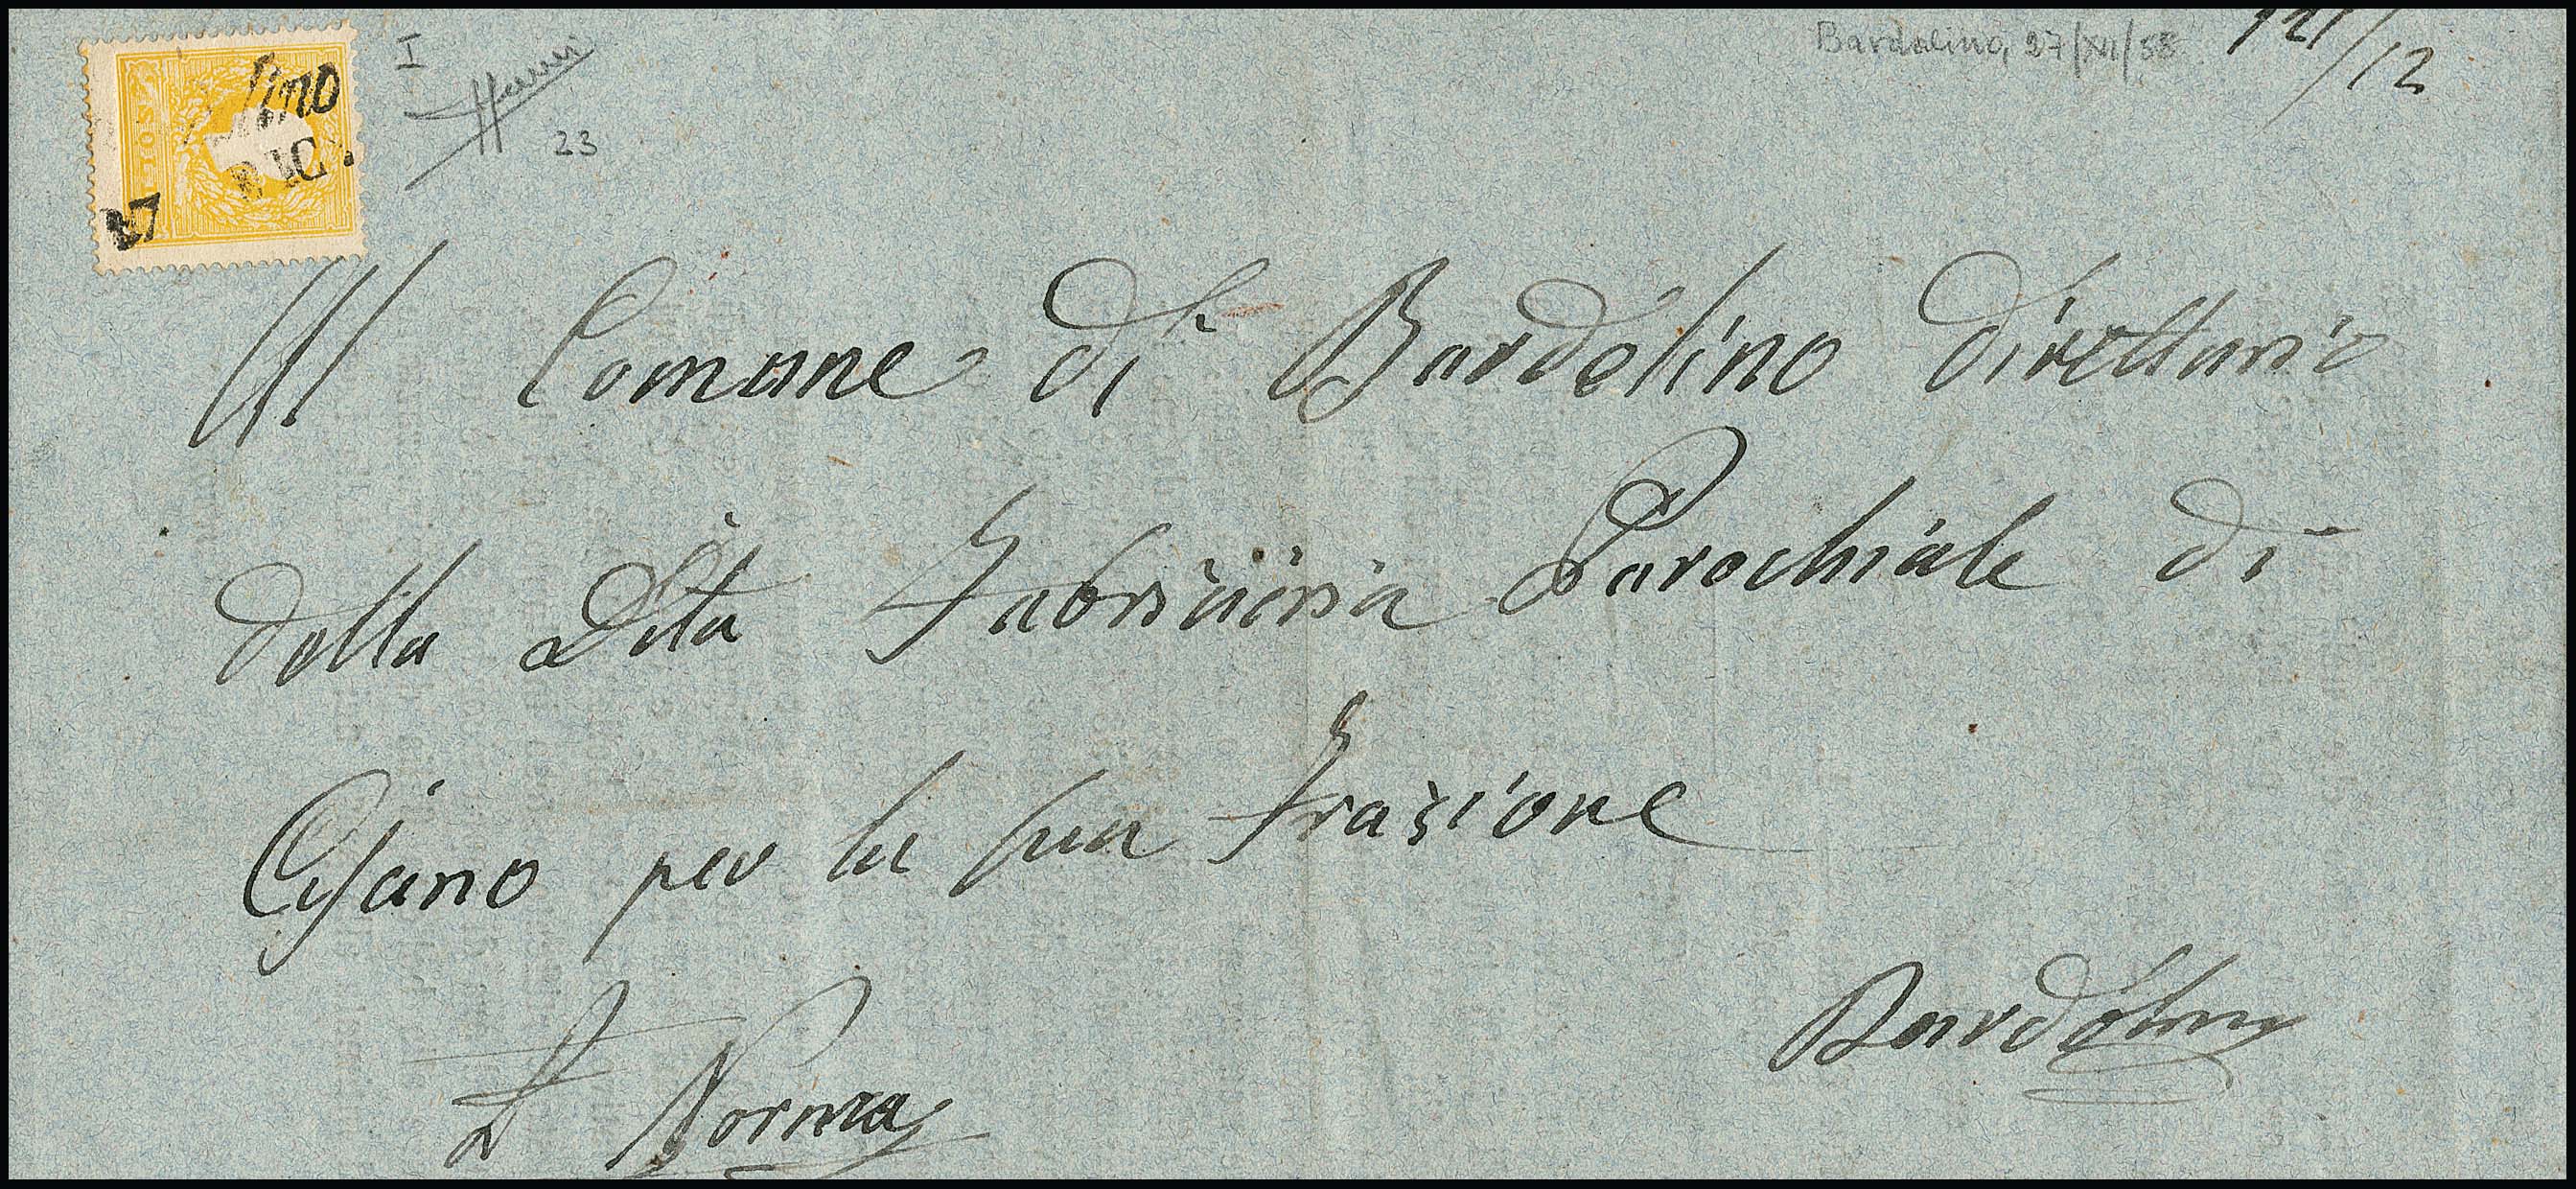 I
23
Bardolino, 27/XII/58
121/12
SOLDI
lino
27 DIC.
Al Comune di Bardolino direttario
della Dita Fabricieria Parochiale di
Cisano per la sua Frazione
Norma
Bardolino